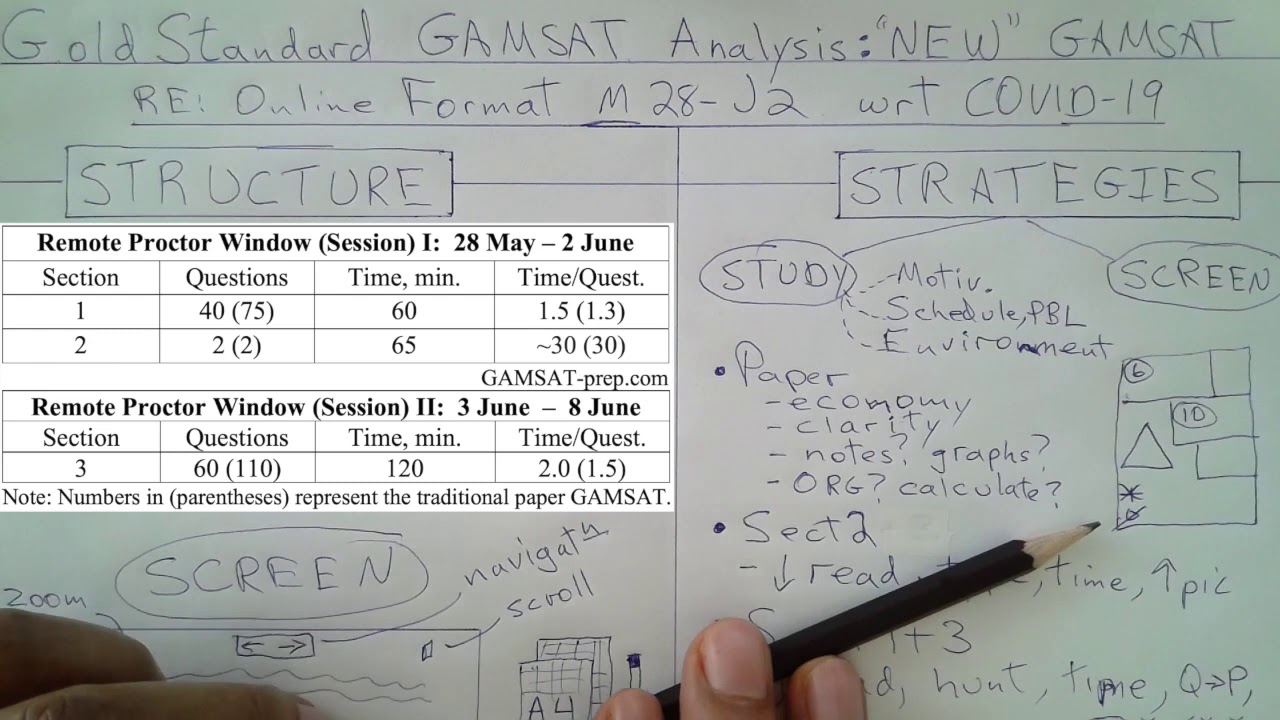 Gold Standard GAMSAT Analysis: "NEW" GAMSAT
RE: Online Format M 28-J2 wrt COVID-19
STRUCTURE
Remote Proctor Window (Session) I: 28 May – 2 June
Section Questions Time, min. Time/Quest.
1 40 (75) 60 1.5 (1.3)
2 2 (2) 65 ~30 (30)
GAMSAT-prep.com
Remote Proctor Window (Session) II: 3 June – 8 June
Section Questions Time, min. Time/Quest.
3 60 (110) 120 2.0 (1.5)
Note: Numbers in (parentheses) represent the traditional paper GAMSAT.
SCREEN
navigatn
scroll
zoom
← →
A4
STRATEGIES
STUDY
- Motiv.
- Schedule, PBL
- Environment
SCREEN
• Paper
- economy
- clarity
- notes? graphs?
- ORG? calculate?
6
10
• Sect 2
- ↓ read, time, ↑ pic
1+3
hunt, time, Q→P,